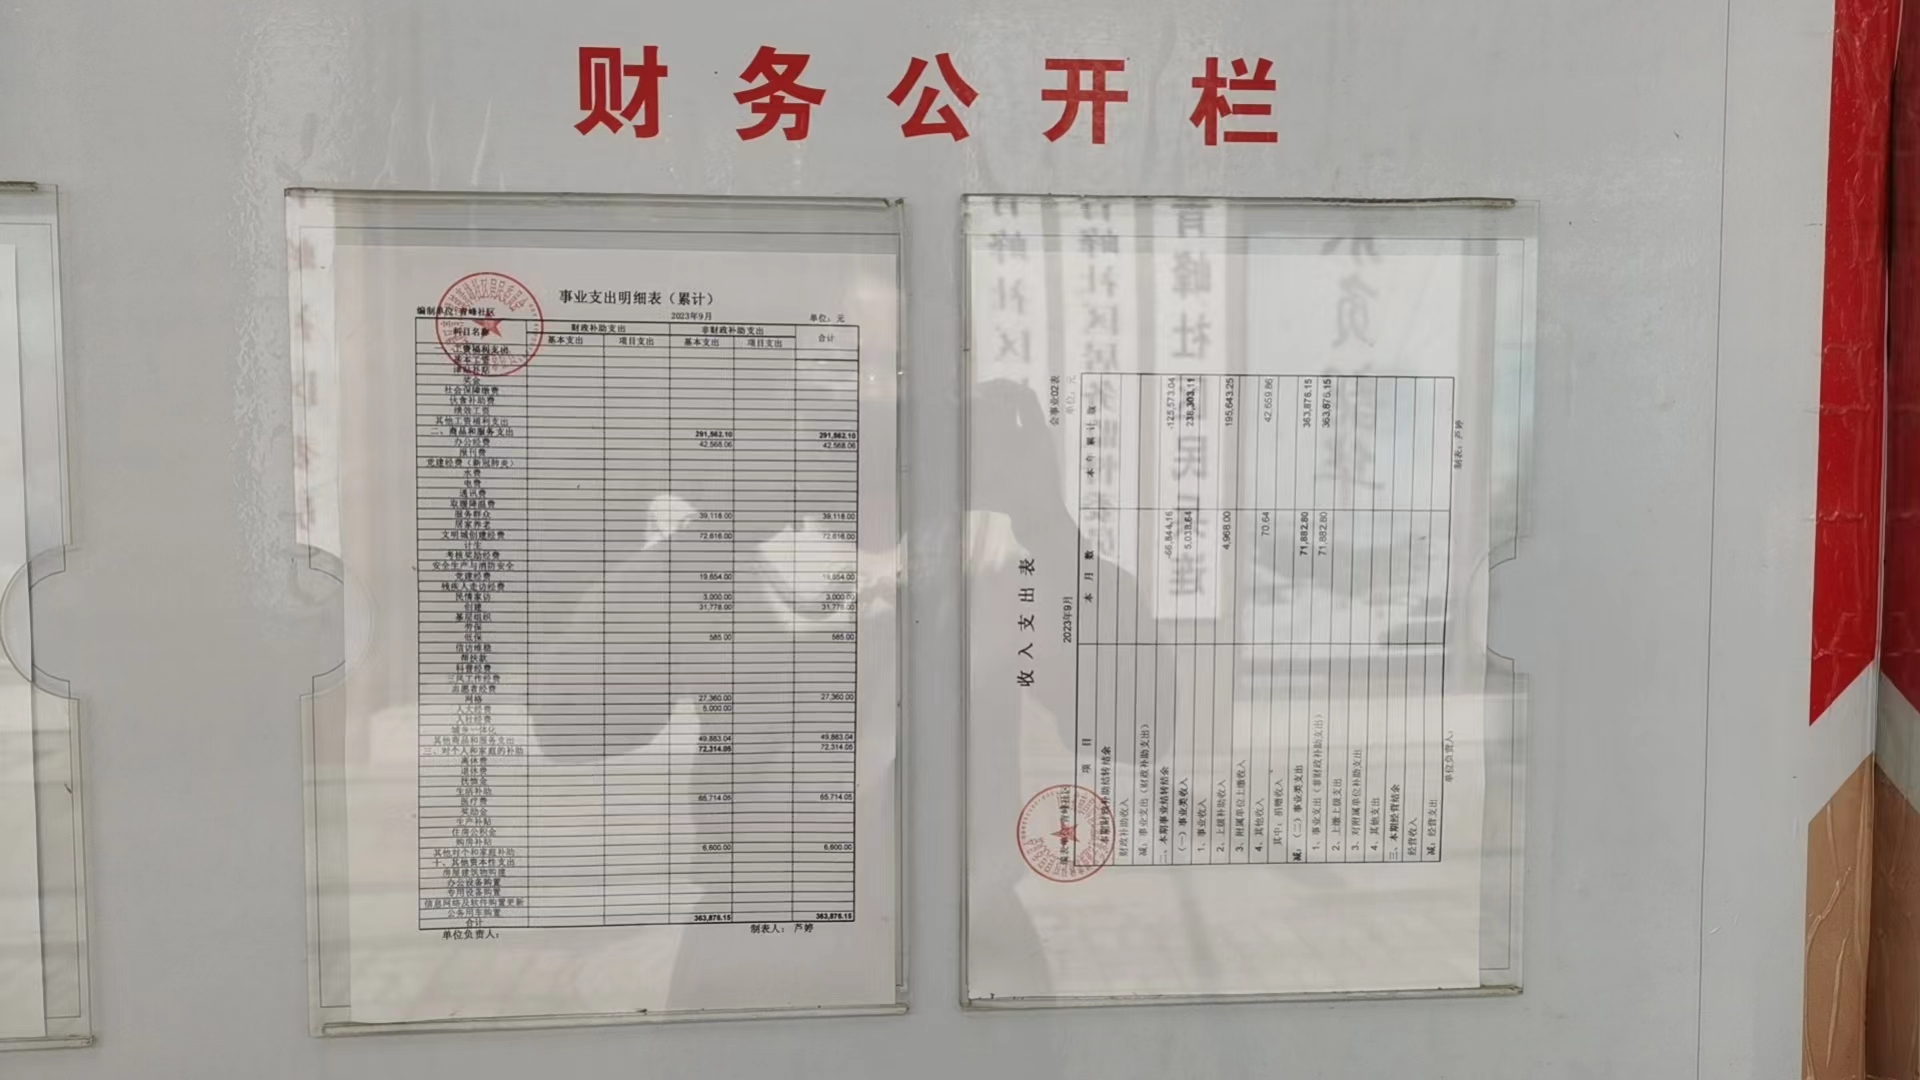 财务公开栏
事业支出明细表（累计）
编制单位：青峰社区 2023年9月 单位：元
科目名称 财政补助支出 非财政补助支出 合计
基本支出 项目支出 基本支出 项目支出
一、工资福利支出
基本工资
津贴补贴
奖金
社会保障缴费
伙食补助费
绩效工资
其他工资福利支出
二、商品和服务支出 291,562.10 291,562.10
办公经费 42,568.06 42,568.06
报刊费
党建经费（新冠肺炎）
水费
电费
通讯费
取暖降温费
服务群众 39,118.00 39,118.00
居家养老
文明城创建经费 72,616.00 72,616.00
计生
考核奖励经费
安全生产与消防安全
党建经费 19,654.00 19,654.00
残疾人走访经费
民情家访 3,000.00 3,000.00
创建 31,778.00 31,778.00
基层组织
劳保
低保 585.00 585.00
信访维稳
帮扶款
科普经费
三风工作经费
志愿者经费
网格 27,360.00 27,360.00
人大经费 5,000.00
人社经费
城乡一体化
其他商品和服务支出 49,883.04 49,883.04
三、对个人和家庭的补助 72,314.05 72,314.05
离休费
退休费
抚恤金
生活补助
医疗费 65,714.05 65,714.05
奖励金
生产补贴
住房公积金
购房补贴
其他对个和家庭补助 6,600.00 6,600.00
十、其他资本性支出
房屋建筑物购建
办公设备购置
专用设备购置
信息网络及软件购置更新
公务用车购置
合计 363,876.15 363,876.15
单位负责人： 制表人：芦婷
收入支出表
会事业02表
编表单位：青峰社区 2023年9月 单位：元
项目 本月数 本年累计数
一、本期财政补助结转结余
财政补助收入
减：事业支出（财政补助支出）
二、本期事业结转结余 -66,844.16 -125,573.04
（一）事业类收入 5,038.64 238,303.11
1、事业收入
2、上级补助收入 4,968.00 195,643.25
3、附属单位上缴收入
4、其他收入 70.64 42,659.86
其中：捐赠收入
减：（二）事业类支出 71,882.80 363,876.15
1、事业支出（非财政补助支出） 71,882.80 363,876.15
2、上缴上级支出
3、对附属单位补助支出
4、其他支出
三、本期经营结余
经营收入
减：经营支出
单位负责人： 制表：芦婷